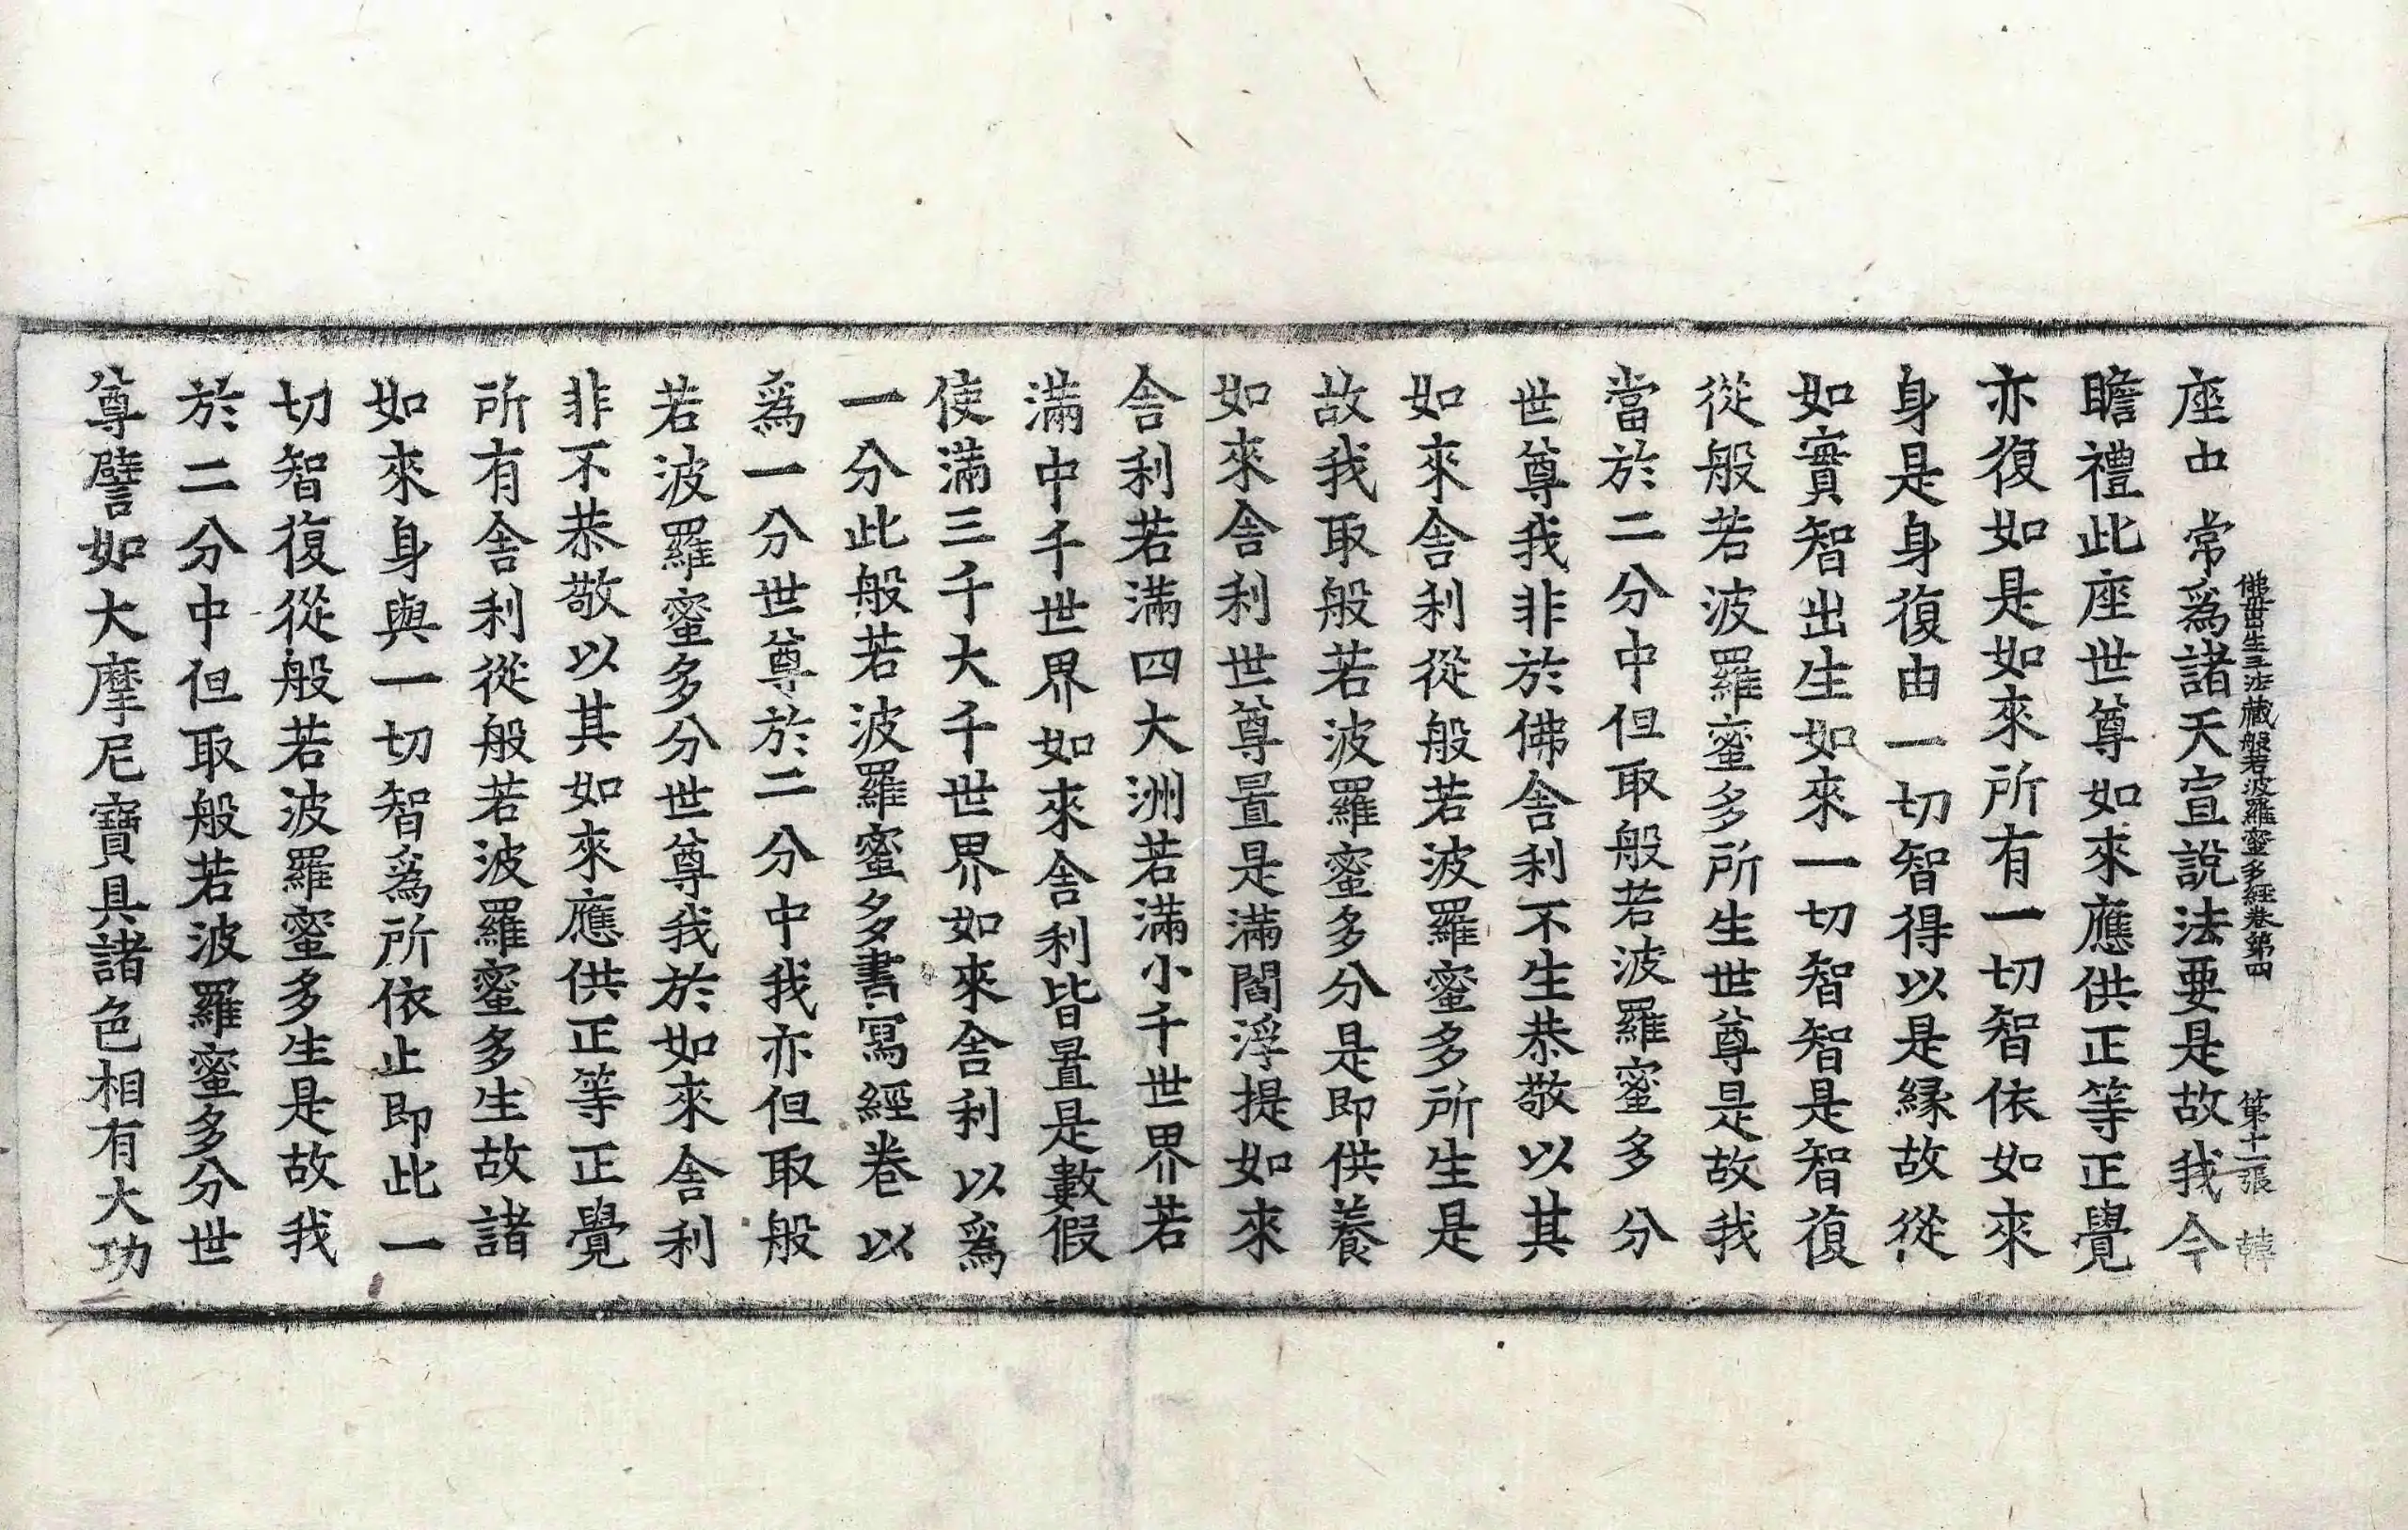 佛母出生三法藏般若波羅蜜多經卷第四 第十一張 韓
座中常爲諸天宣說法要是故我今
瞻禮此座世尊如來應供正等正覺
亦復如是如來所有一切智依如來
身是身復由一切智得以是緣故從
如實智出生如來一切智智是智復
從般若波羅蜜多所生世尊是故我
當於二分中但取般若波羅蜜多分
世尊我非於佛舍利不生恭敬以其
如來舍利從般若波羅蜜多所生是
故我取般若波羅蜜多分是即供養
如來舍利世尊置是滿閻浮提如來
舍利若滿四大洲若滿小千世界若
滿中千世界如來舍利皆置是數假
使滿三千大千世界如來舍利以爲
一分此般若波羅蜜多書寫經卷以
爲一分世尊於二分中我亦但取般
若波羅蜜多分世尊我於如來舍利
非不恭敬以其如來應供正等正覺
所有舍利從般若波羅蜜多生故諸
如來身與一切智爲所依止即此一
切智復從般若波羅蜜多生是故我
於二分中但取般若波羅蜜多分世
尊譬如大摩尼寶具諸色相有大功